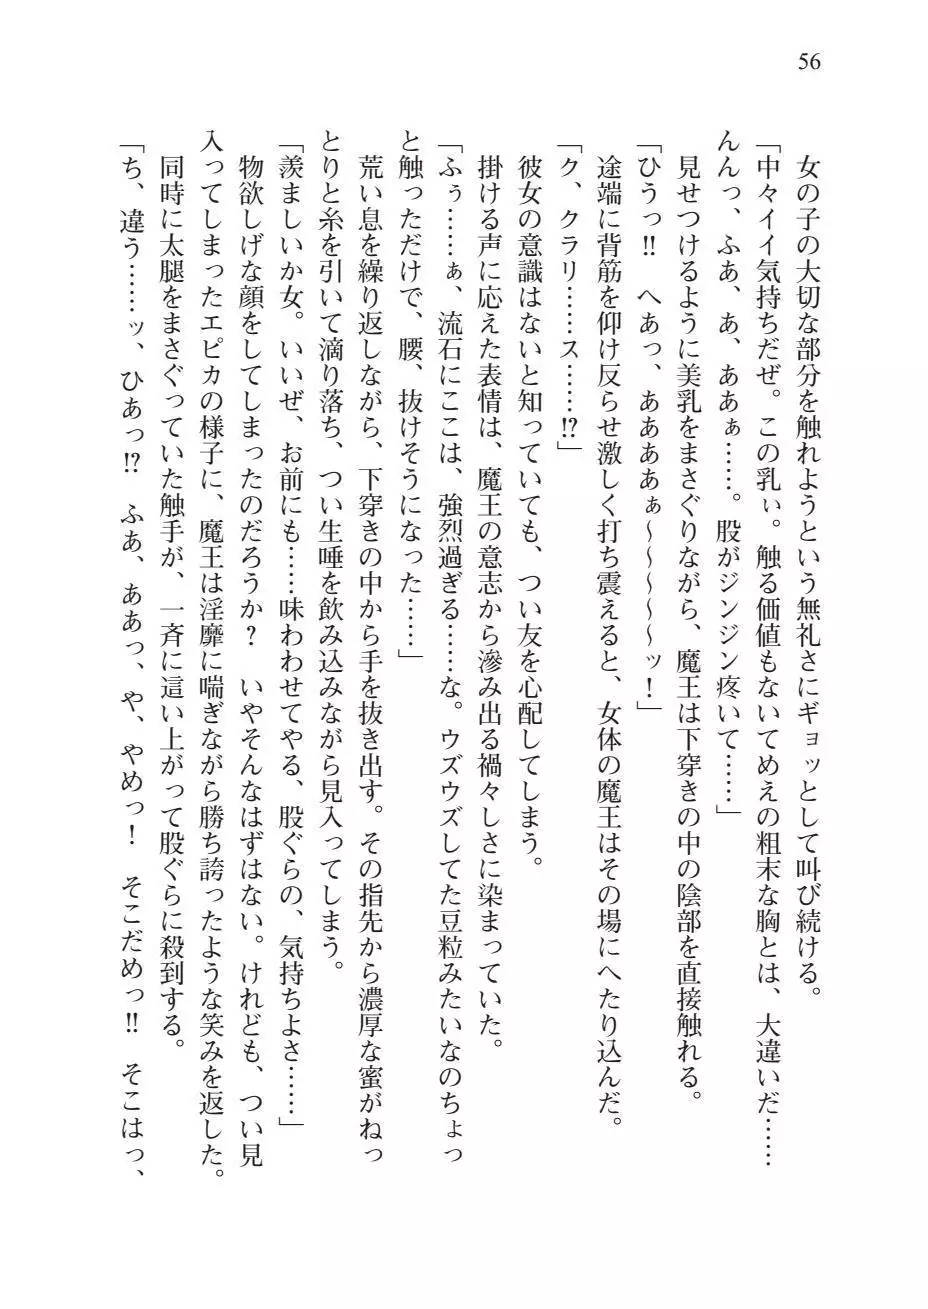 56
女の子の大切な部分を触れようという無礼さにギョッとして叫び続ける。
「中々イイ気持ちだぜ。この乳ぃ。触る価値もないてめえの粗末な胸とは、大違いだ……
んんっ、ふあ、あ、ああぁ……。股がジンジン疼いて……」
見せつけるように美乳をまさぐりながら、魔王は下穿きの中の陰部を直接触れる。
「ひうっ!!　へあっ、ああああぁ～～～～～ッ！」
途端に背筋を仰け反らせ激しく打ち震えると、女体の魔王はその場にへたり込んだ。
「ク、クラリ……ス……!?」
彼女の意識はないと知っていても、つい友を心配してしまう。
掛ける声に応えた表情は、魔王の意志から滲み出る禍々しさに染まっていた。
「ふぅ……ぁ、流石にここは、強烈過ぎる……な。ウズウズしてた豆粒みたいなのちょっ
と触っただけで、腰、抜けそうになった……」
荒い息を繰り返しながら、下穿きの中から手を抜き出す。その指先から濃厚な蜜がねっ
とりと糸を引いて滴り落ち、つい生唾を飲み込みながら見入ってしまう。
「羨ましいか女。いいぜ、お前にも……味わわせてやる、股ぐらの、気持ちよさ……」
物欲しげな顔をしてしまったのだろうか？　いやそんなはずはない。けれども、つい見
入ってしまったエピカの様子に、魔王は淫靡に喘ぎながら勝ち誇ったような笑みを返した。
同時に太腿をまさぐっていた触手が、一斉に這い上がって股ぐらに殺到する。
「ち、違う……ッ、ひあっ!?　ふあ、ああっ、や、やめっ！　そこだめっ!!　そこはっ、